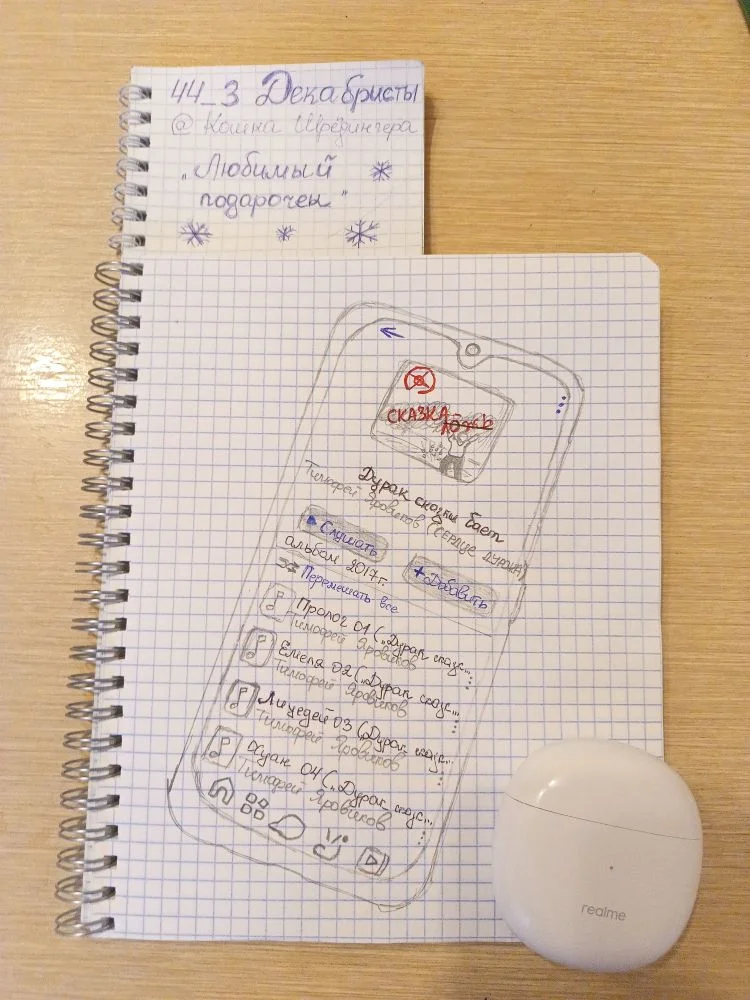 44_3 Декабристы
@ Кошка Шрёдингера
„Любимый
подарочек"
СКАЗКА-
ЛОЖЬ
Дурак сказки бает
Тимофей Яровиков (СЕРДЦЕ ДУРАКА)
Слушать
+ Добавить
альбом 2017г.
Перемешать все
Пролог 01 („Дурак сказ...
Тимофей Яровиков
Емеля 02 („Дурак сказ...
Тимофей Яровиков
Лицедей 03 („Дурак сказ...
Тимофей Яровиков
Жуан 04 („Дурак сказ...
Тимофей Яровиков
realme